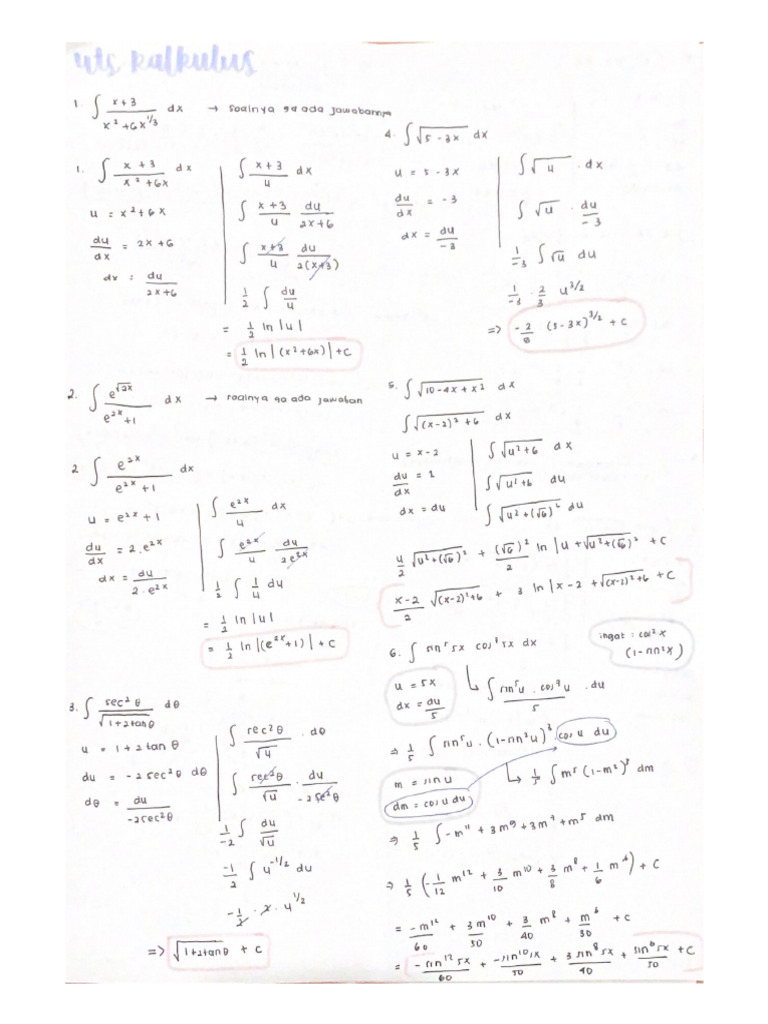 uts kalkulus
1. ∫ x+3 / x² + 6x^1/3 dx → soalnya ga ada jawabannya
1. ∫ x + 3 / x² + 6x dx
u = x² + 6x
du/dx = 2x + 6
dx = du / 2x+6
∫ x+3 / u dx
∫ x+3 / u du / 2x+6
∫ x+3 / u du / 2(x+3)
1/2 ∫ du / u
= 1/2 ln |u|
= 1/2 ln |(x² + 6x)| + C
2. ∫ e^√2x / e^2x + 1 dx → soalnya ga ada jawaban
2 ∫ e^2x / e^2x + 1 dx
u = e^2x + 1
du/dx = 2. e^2x
dx = du / 2. e^2x
∫ e^2x / u dx
∫ e^2x / u du / 2 e^2x
1/2 ∫ 1/u du
= 1/2 ln |u|
= 1/2 ln |(e^2x + 1)| + C
3. ∫ sec² θ / √1+2tanθ dθ
u = 1 + 2 tan θ
du = -2 sec² θ dθ
dθ = du / -2sec²θ
∫ sec² θ / √u . dθ
∫ sec² θ / √u . du / -2 sec² θ
1/-2 ∫ du / √u
-1/2 ∫ u^-1/2 du
-1/2 . 2 . u^1/2
=> √1+2tanθ + C
4. ∫ √5 - 3x dx
u = 5 - 3x
du/dx = -3
dx = du / -3
∫ √u . dx
∫ √u . du / -3
1/-3 ∫ √u du
1/-3 . 2/3 u^3/2
=> (5-3x)^3/2 + C
5. ∫ √10 - 4x + x² dx
∫ √(x-2)² + 6 dx
u = x - 2
du/dx = 1
dx = du
∫ √u² + 6 dx
∫ √u² + 6 du
∫ √u² + (√6)² du
u/2 √u² + (√6)² + (√6)²/2 ln |u + √u² + (√6)² + C
x-2/2 √(x-2)² + 6 + 3 ln |x - 2 + √(x-2)² + 6 + C
6. ∫ sin⁵ 5x dx
ingat : cos² x
(1 - sin² x)
u = 5x
dx = du/5
∫ sin⁵ u . u . du / 5
=> 1/5 ∫ sin⁵ u . (1 - sin² u)³ cos u du
m = sin u
dm = cos u du
1/5 ∫ m⁵ (1 - m²)³ dm
=> 1/5 ∫ -m¹¹ + 3m⁹ + 3m⁷ + m⁵ dm
=> 1/5 (-1/12 m¹² + 3/10 m¹⁰ + 3/8 m⁸ + 1/6 m⁶) + C
= -m¹²/60 + 3m¹⁰/50 + 3/40 m⁸ + m⁶/30 + C
= -sin¹² 5x/60 + 5x/50 + 3 sin⁸ 5x/40 + sin⁶ 5x + C